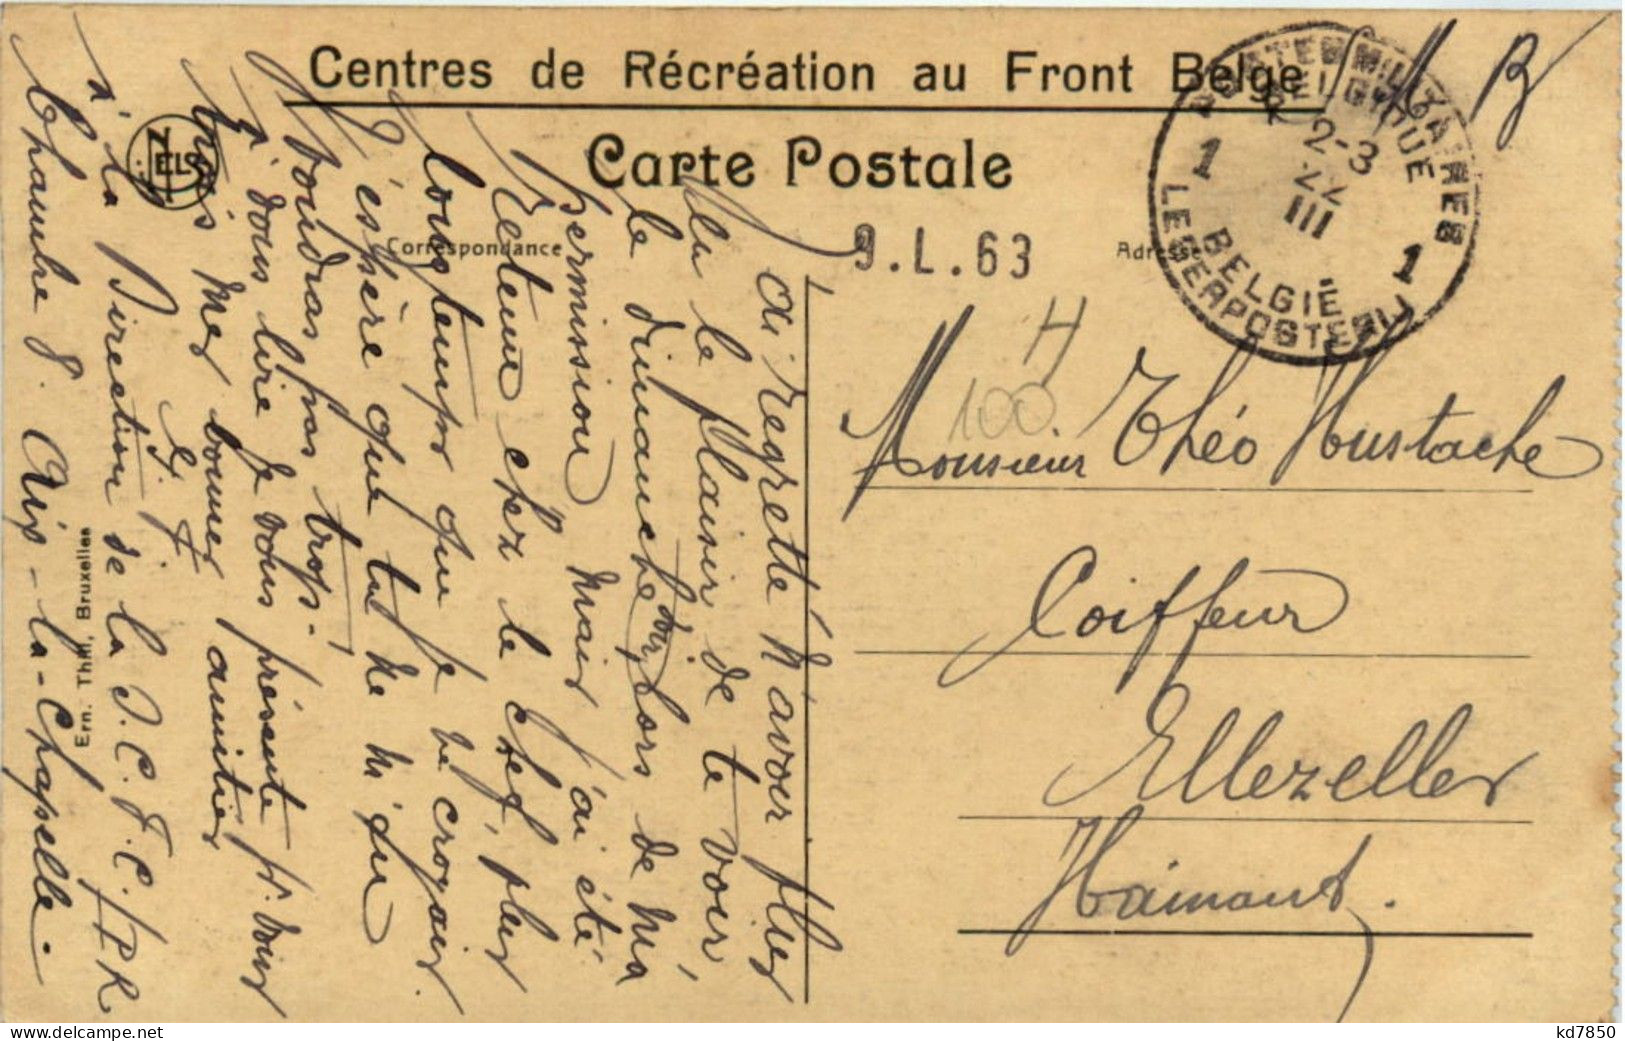 Centres de Récréation au Front Belge
S.M B
Carte Postale
NELS
Correspondance
Adresse
9.L.63
POSTES MILITAIRES
BELGIQUE
1 1
2-3
22
III
BELGIË
LEGERPOSTERIJ
H
100.
Monsieur Théo Hustache
Coiffeur
Ellezelles
Hainaut.
ai regretté n'avoir plus
eu le plaisir de te voir,
le dimanche soir, lors de ma
permission mais j'ai été
retenu chez le chef, plus
longtemps que je ne croyais.
J'espère que tu ne m'en
voudras pas trop.
À vous lire je vous présente pr. vous
tous mes bonnes amitiés
à la Direction de la I.C.F.C./PR
Chambre 8. Aix-la-Chapelle.
Ern. Thill, Bruxelles
kd7850
www.delcampe.net